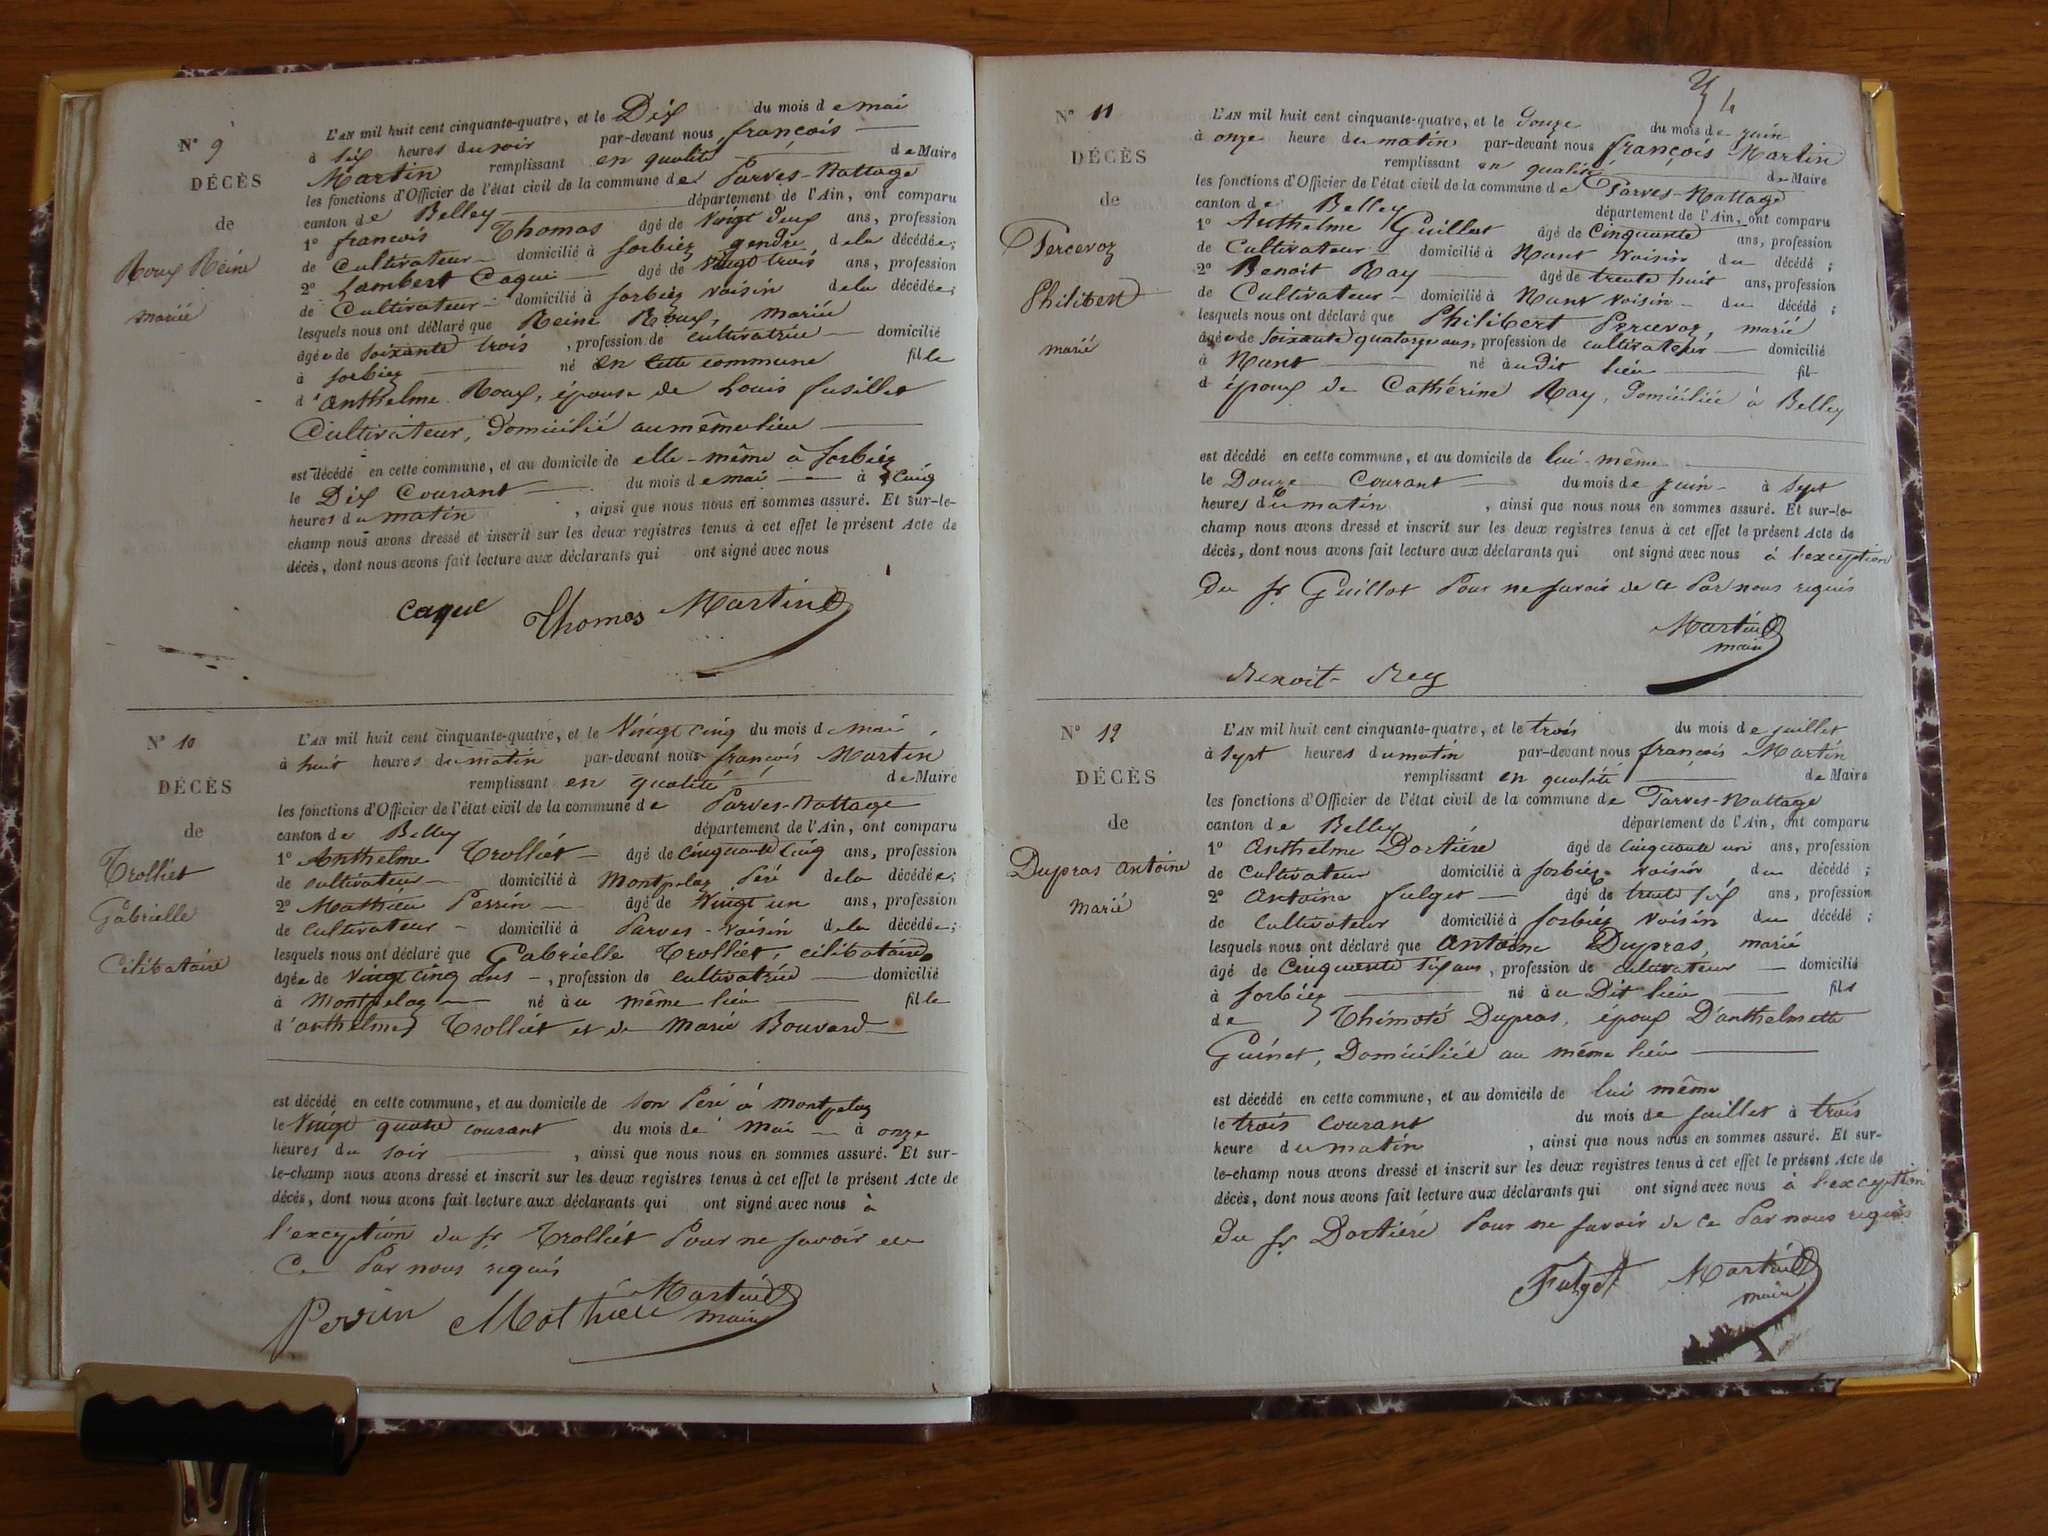 N° 9
DÉCÈS
de
Roux Reine
mariée
L'AN mil huit cent cinquante-quatre, et le Dix du mois de mai
à six heures du soir par-devant nous françois
Martin remplissant en qualité de Maire
les fonctions d'Officier de l'état civil de la commune de Parves-Nattage
canton de Belley département de l'Ain, ont comparu
1° françois Thomas âgé de vingt deux ans, profession
de Cultivateur domicilié à Sorbiez gendre de la décédée;
2° Lambert Caque âgé de vingt trois ans, profession
de Cultivateur domicilié à Sorbiez voisin de la décédée;
lesquels nous ont déclaré que Reine Roux, mariée
âgée de soixante trois, profession de cultivatrice domicilié
à Sorbiez né en cette commune fille
d'anthelme Roux, épouse de Louis fusillet
Cultivateur, domicilié au même lieu
est décédé en cette commune, et au domicile de elle-même à Sorbiez
le Dix Courant du mois de mai à cinq
heures du matin, ainsi que nous nous en sommes assuré. Et sur-le-
champ nous avons dressé et inscrit sur les deux registres tenus à cet effet le présent Acte de
décès, dont nous avons fait lecture aux déclarants qui ont signé avec nous
caque Thomas Martin
N° 10
DÉCÈS
de
Trolliet
Gabrielle
Célibataire
L'AN mil huit cent cinquante-quatre, et le Vingt cinq du mois de mai
à huit heures du matin par-devant nous françois Martin
remplissant en qualité de Maire
les fonctions d'Officier de l'état civil de la commune de Parves-Nattage
canton de Belley département de l'Ain, ont comparu
1° Anthelme Trolliet âgé de cinquante cinq ans, profession
de cultivateur domicilié à Montpelaz Père de la décédée;
2° Mathieu Perrin âgé de vingt un ans, profession
de cultivateur domicilié à Parves - voisin de la décédée;
lesquels nous ont déclaré que Gabrielle Trolliet, célibataire
âgée de vingt cinq ans, profession de cultivatrice domicilié
à Montpelaz né à u même lieu fille
d'anthelme Trolliet et de Marie Bouvard
est décédé en cette commune, et au domicile de son Père à Montpelaz
le Vingt quatre courant du mois de mai à onze
heures du soir, ainsi que nous nous en sommes assuré. Et sur-
le-champ nous avons dressé et inscrit sur les deux registres tenus à cet effet le présent Acte de
décès, dont nous avons fait lecture aux déclarants qui ont signé avec nous à
l'exception du sr Trolliet Pour ne savoir de
Ce Par nous requis
Perrin Mathieu Martin
maire
N° 11
DÉCÈS
de
Percevoz
Philibert
marié
L'AN mil huit cent cinquante-quatre, et le Douze du mois de juin
à onze heure du matin par-devant nous françois Martin
remplissant en qualité de Maire
les fonctions d'Officier de l'état civil de la commune de Parves-Nattage
canton de Belley département de l'Ain, ont comparu
1° Anthelme Guillot âgé de cinquante ans, profession
de Cultivateur domicilié à Nant voisin du décédé;
2° Benoit Ray âgé de trente huit ans, profession
de Cultivateur domicilié à Nant voisin du décédé;
lesquels nous ont déclaré que Philibert Percevoz, marié
âgé de soixante quatorze ans, profession de cultivateur domicilié
à Nant né audit lieu fil
d époux de Cathérine Ray, domiciliée à Belley
est décédé en cette commune, et au domicile de lui-même
le Douze Courant du mois de juin à sept
heures du matin, ainsi que nous nous en sommes assuré. Et sur-le-
champ nous avons dressé et inscrit sur les deux registres tenus à cet effet le présent Acte de
décès, dont nous avons fait lecture aux déclarants qui ont signé avec nous à l'exception
Du sr Guillot Pour ne savoir de ce Par nous requis
Martin
maire
Benoit Rey
N° 12
DÉCÈS
de
Dupras Antoine
Marié
L'AN mil huit cent cinquante-quatre, et le trois du mois de juillet
à sept heures du matin par-devant nous françois Martin
remplissant en qualité de Maire
les fonctions d'Officier de l'état civil de la commune de Parves-Nattage
canton de Belley département de l'Ain, ont comparu
1° Anthelme Dortière âgé de cinquante un ans, profession
de cultivateur domicilié à Sorbiez voisin du décédé;
2° Antoine fulget âgé de trente six ans, profession
de cultivateur domicilié à Sorbiez voisin du décédé;
lesquels nous ont déclaré que Antoine Dupras, marié
âgé de cinquante six ans, profession de cultivateur domicilié
à Sorbiez né à u Dit lieu fils
de Thimoté Dupras, époux D'anthelmette
Guinet, Domiciliée au même lieu
est décédé en cette commune, et au domicile de lui même
le trois courant du mois de juillet à trois
heure du matin, ainsi que nous nous en sommes assuré. Et sur-
le-champ nous avons dressé et inscrit sur les deux registres tenus à cet effet le présent Acte de
décès, dont nous avons fait lecture aux déclarants qui ont signé avec nous à l'exception
Du sr Dortière Pour ne savoir de ce Par nous requis
Fulget Martin
maire